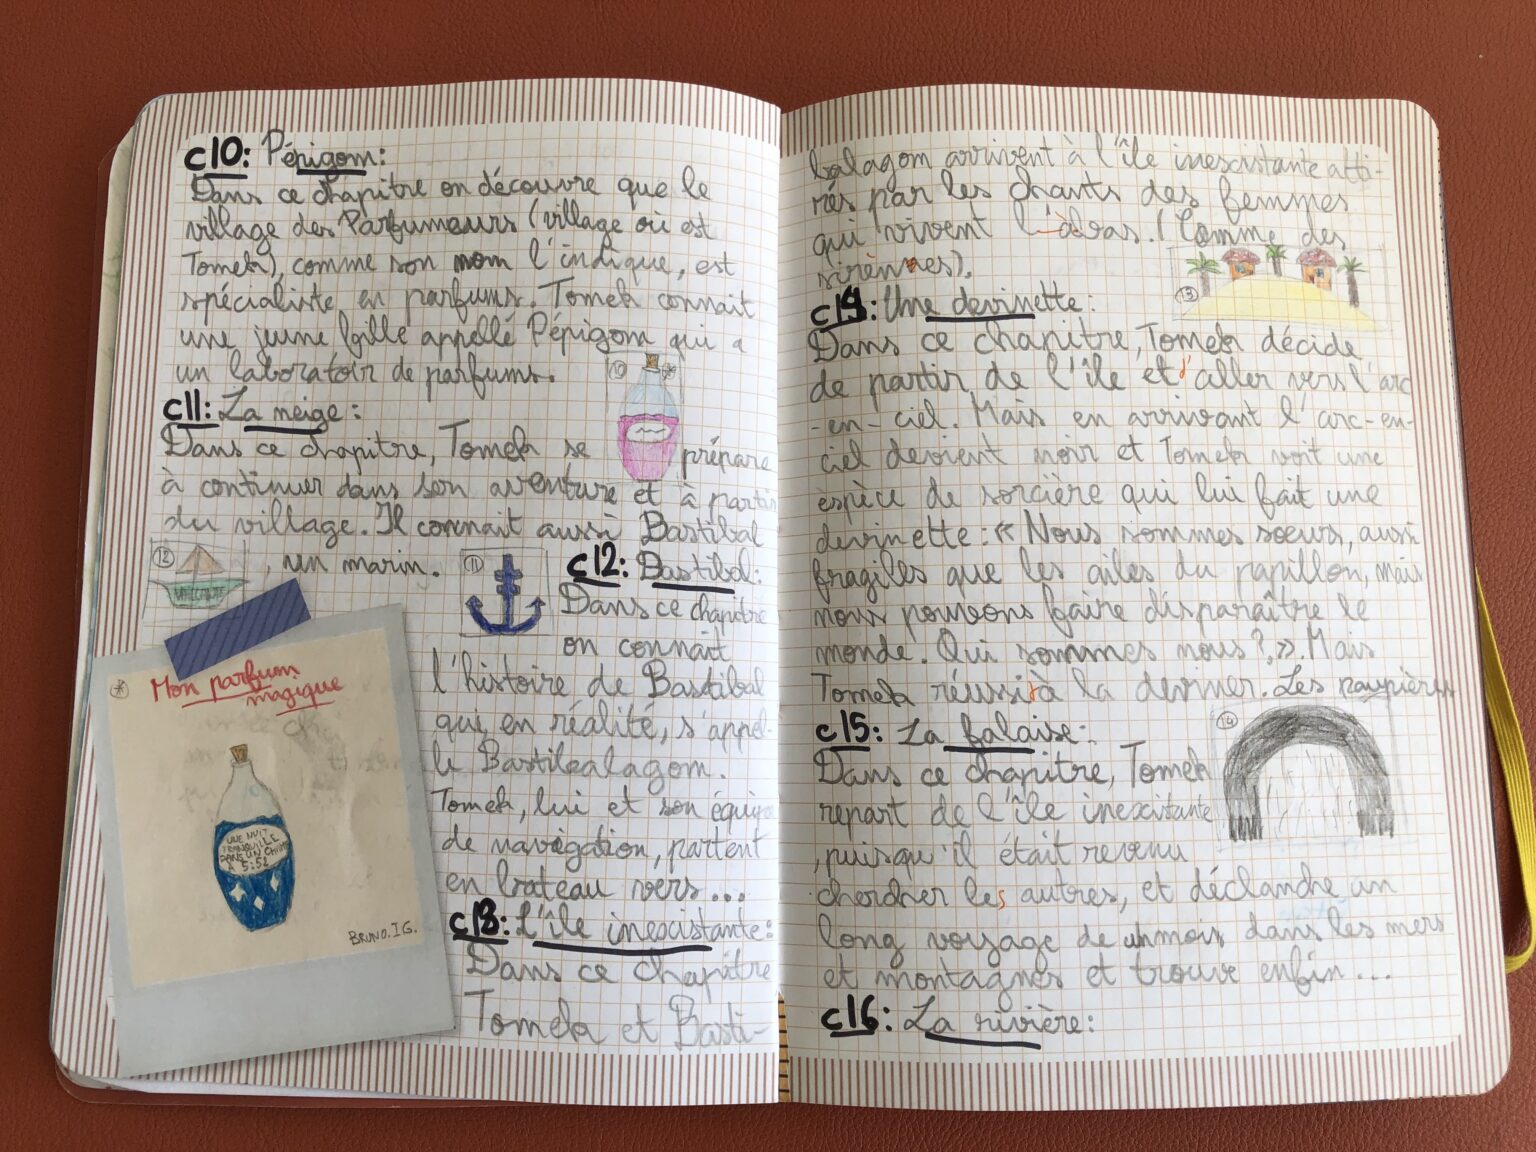 c10: Pépigom:
Dans ce chapitre on découvre que le
village des Parfumeurs (village où est
Tomek), comme son nom l'indique, est
spécialiste en parfums. Tomek connait
une jeune fille appellé Pépigom qui a
un laboratoir de parfums.
10 *
c11: La neige:
Dans ce chapitre, Tomek se prépare
à continuer dans son aventure et à partir
du village. Il connait aussi Bastibal
, un marin.
12
11
c12: Bastibal:
Dans ce chapitre
on connait
l'histoire de Bastibal
que, en réalité, s'appel-
le Bastibalagom.
Tomek, lui et son équipe
de navigation, partent
en bateau vers...
c13: L'île inexistante:
Dans ce chapitre
Tomek et Basti-
* Mon parfum
magique
UNE NUIT
TRANQUILLE
DANS UN
À 5:51
BRUNO.IG.
balagom arrivent à l'île inexistante atti-
rés par les chants des femmes
qui vivent là-bas. (Comme des
sirènes).
13
c14: Une devinette:
Dans ce chapitre, Tomek décide
de partir de l'île et d'aller vers l'arc
-en-ciel. Mais en arrivant l'arc-en-
ciel devient noir et Tomek voit une
espèce de sorcière qui lui fait une
devinette: « Nous sommes sœurs, aussi
fragiles que les ailes du papillon, mais
nous pouvons faire disparaître le
monde. Qui sommes nous?». Mais
Tomek réussi à la deviner. Les paupières
14
c15: La falaise:
Dans ce chapitre, Tomek
repart de l'île inexistante
, puisqu'il était revenu
chercher les autres, et déclanche un
long voyage de un mois dans les mers
et montagnes et trouve enfin...
c16: La rivière: